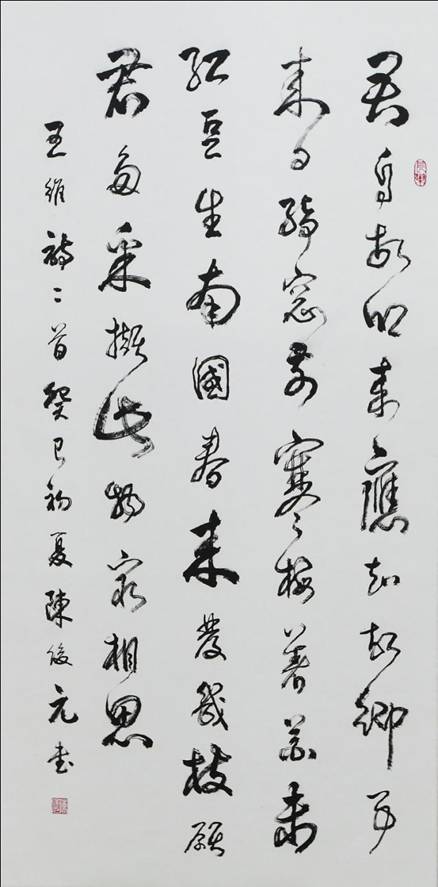 君自故鄉來應知故鄉事
来日綺窓前寒梅著花未
紅豆生南國春来發幾枝願
君多采擷此物最相思
王維詩二首癸巳初夏陳俊元書